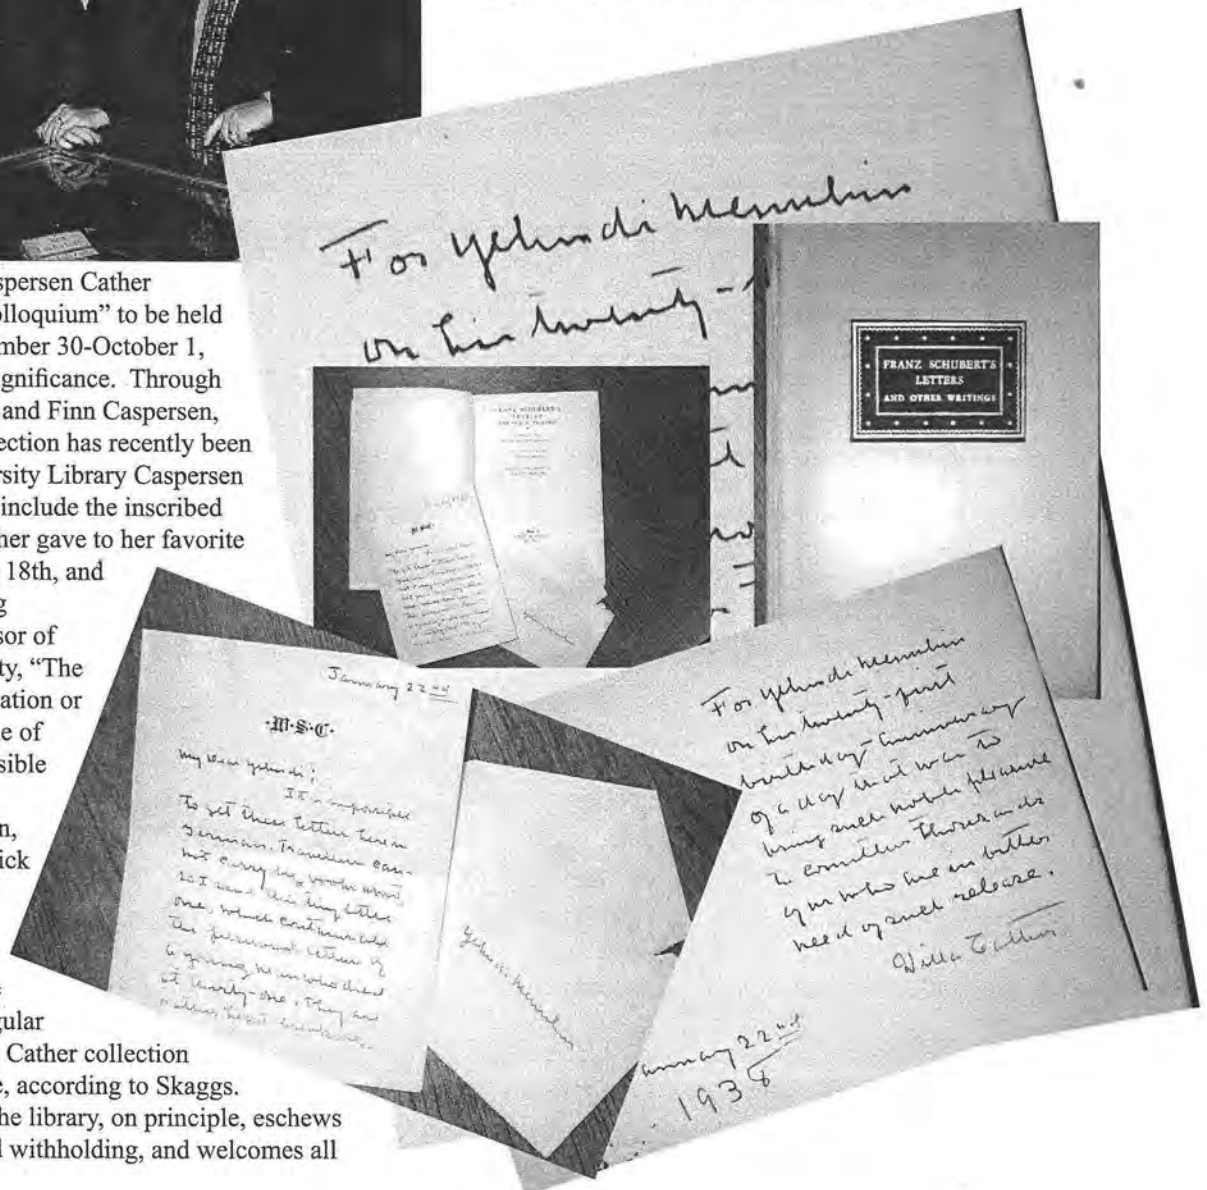 spersen Cather
olloquium” to be held
mber 30-October 1,
gnificance. Through
and Finn Caspersen,
ection has recently been
rsity Library Caspersen
include the inscribed
her gave to her favorite
18th, and
g
sor of
ty, “The
ation or
e of
sible
n,
ick
gular
Cather collection
e, according to Skaggs.
he library, on principle, eschews
l withholding, and welcomes all
For Yehudi Menuhin
on his twenty-
FRANZ SCHUBERT'S
LETTERS
AND OTHER WRITINGS
FRANZ SCHUBERT'S
LETTERS
AND OTHER WRITINGS
January 22nd
·W·S·C·
My Dear Yehudi;
It is impossible
to get these letters here in
German. Travellers can-
not carry big books about,
so I send this tiny letter
one, which contains all
the personal letters of
a young man who died
at thirty-one. They are
rather heart
Yehudi Menuhin
For Yehudi Menuhin
on his twenty-first
birthday-anniversary
of a day that was to
bring such noble pleasure
to countless thousands
of us who are in bitter
need of such release.
Willa Cather
January 22nd
1938